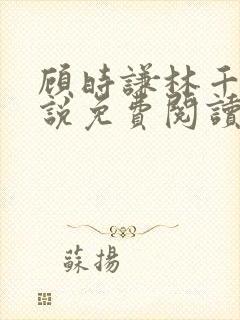 顾時謙林千
説免費閱讀
蘇揚